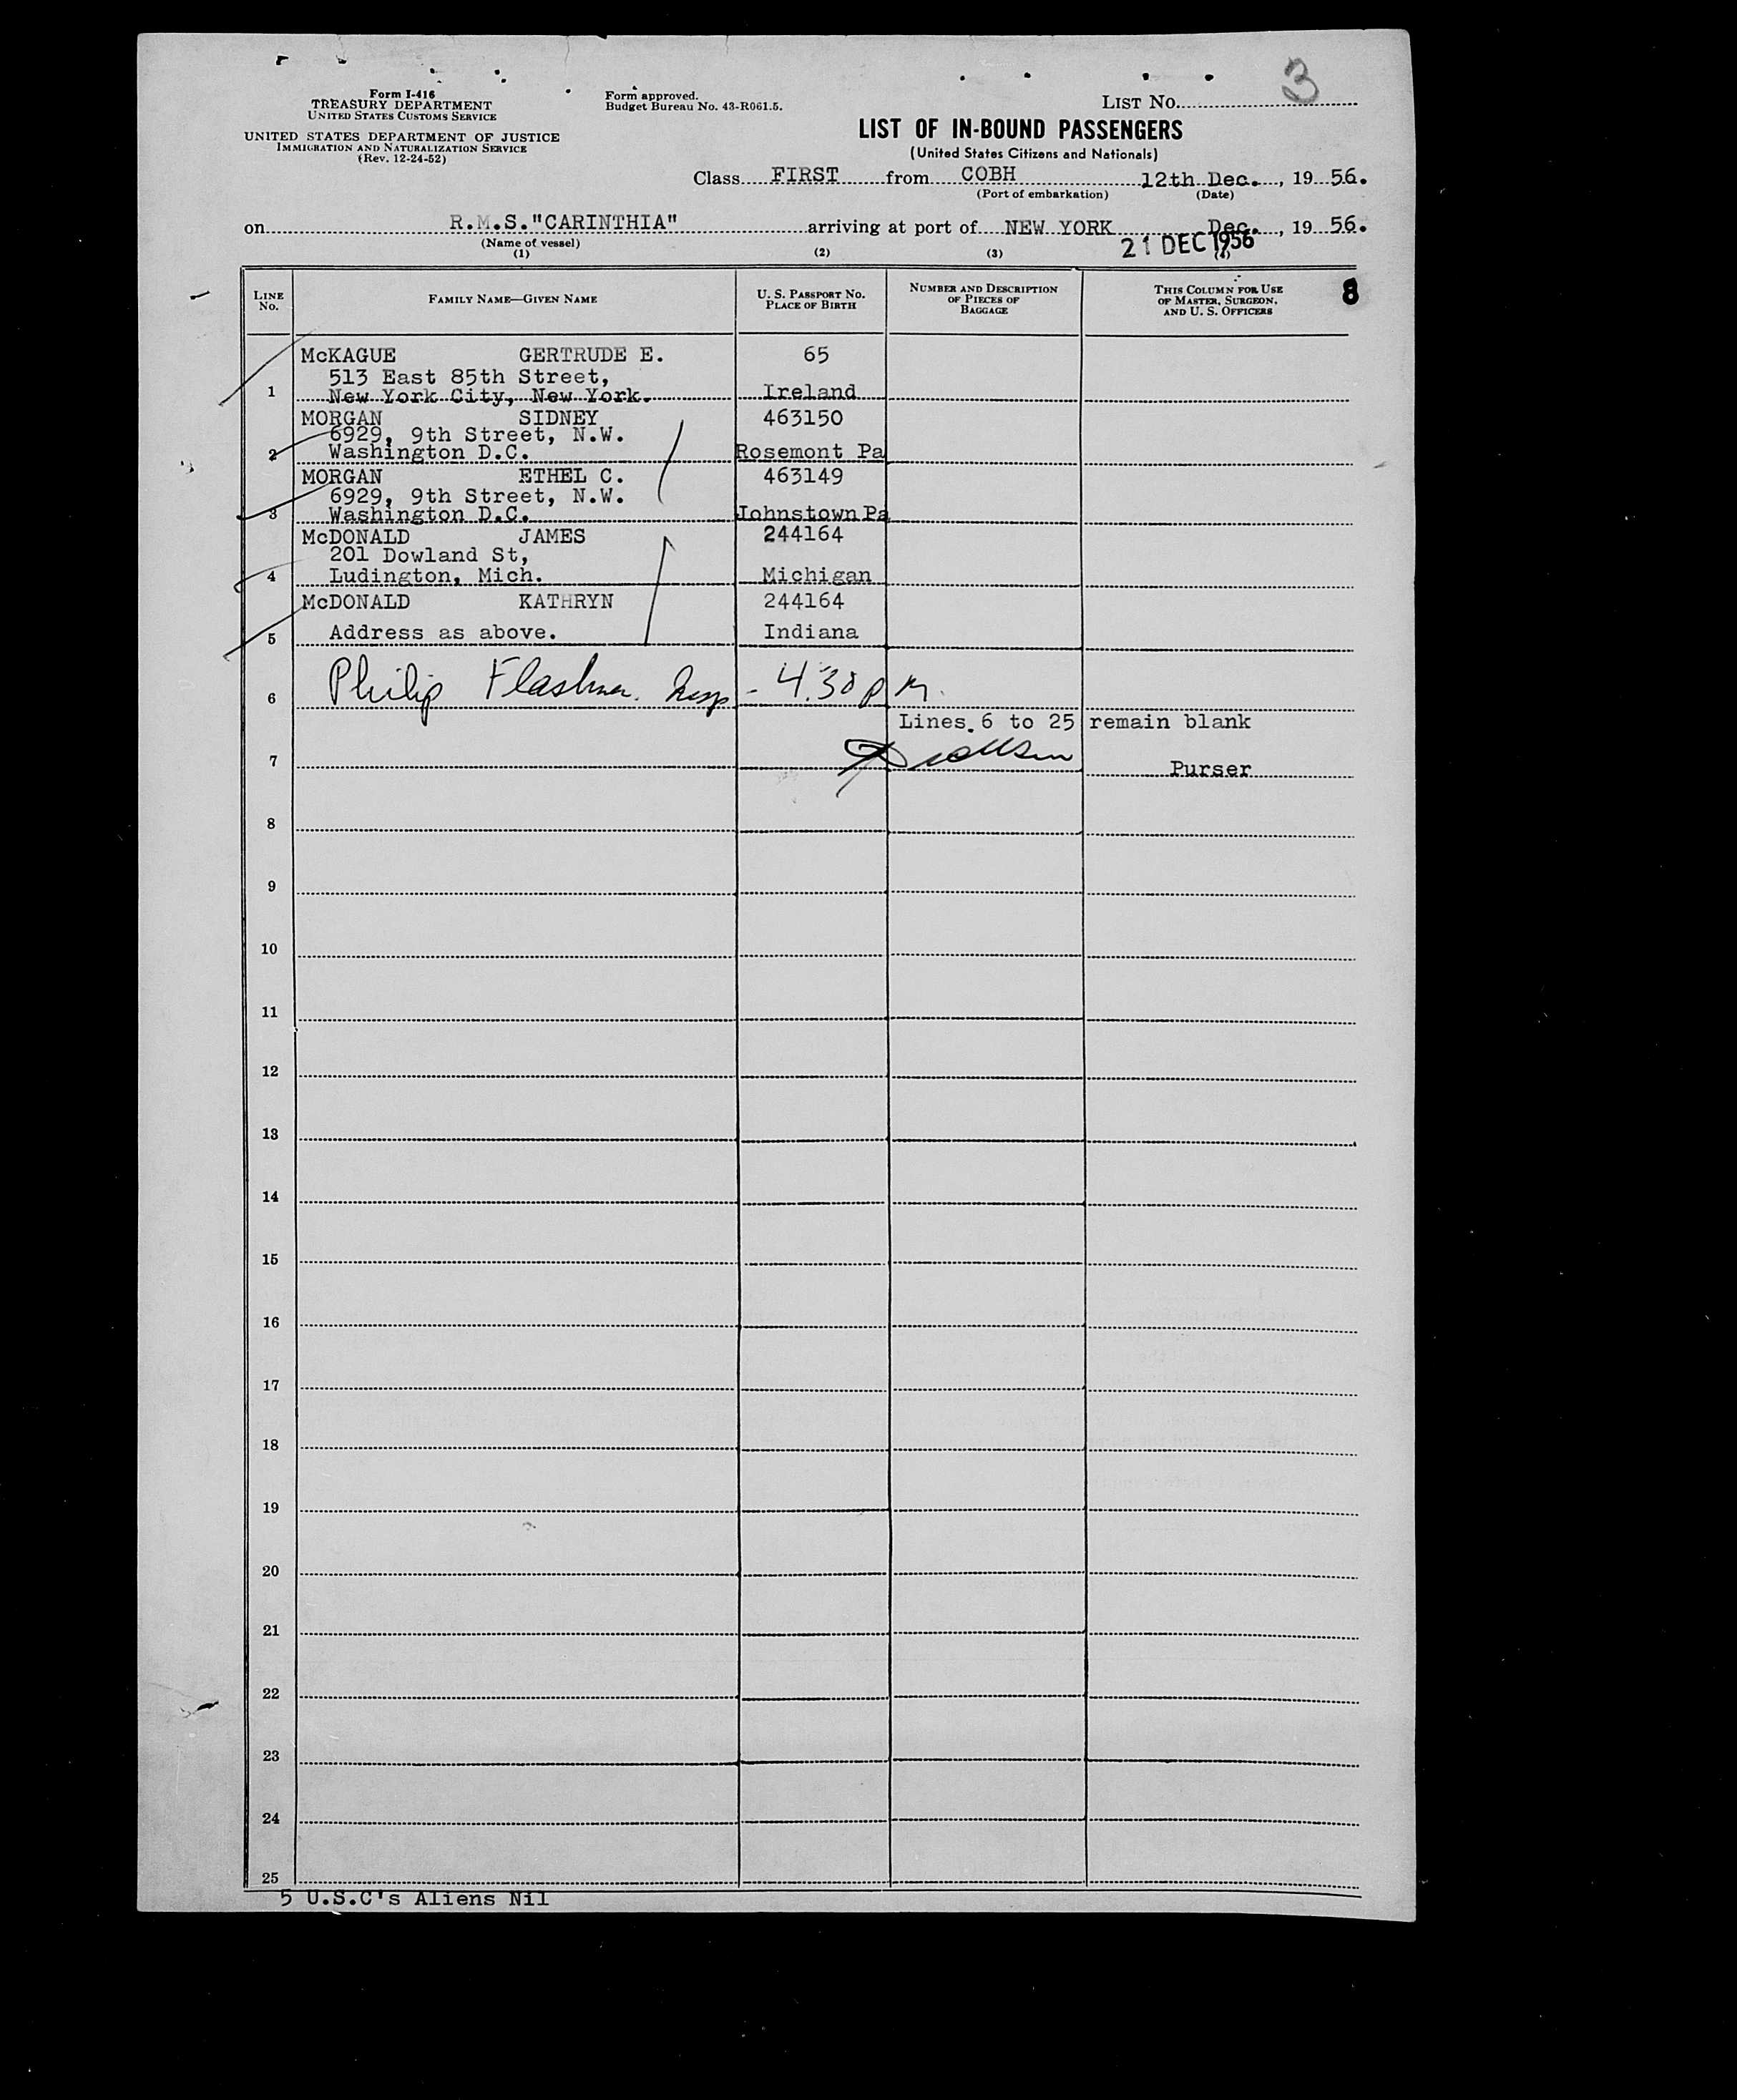 3
Form I-416
TREASURY DEPARTMENT
UNITED STATES CUSTOMS SERVICE
UNITED STATES DEPARTMENT OF JUSTICE
IMMIGRATION AND NATURALIZATION SERVICE
(Rev. 12-24-52)
Form approved.
Budget Bureau No. 43-R061.5.
LIST NO.
LIST OF IN-BOUND PASSENGERS
(United States Citizens and Nationals)
Class FIRST from COBH 12th Dec., 19 56.
(Port of embarkation) (Date)
on R.M.S."CARINTHIA" arriving at port of NEW YORK Dec., 19 56.
(Name of vessel) 21 DEC 1956
(1) (2) (3) (4)
LINE No. FAMILY NAME—GIVEN NAME U. S. PASSPORT NO. PLACE OF BIRTH NUMBER AND DESCRIPTION OF PIECES OF BAGGAGE THIS COLUMN FOR USE OF MASTER, SURGEON, AND U. S. OFFICERS 8
McKAGUE GERTRUDE E. 65
513 East 85th Street,
1 New York City, New York. Ireland
MORGAN SIDNEY 463150
6929, 9th Street, N.W.
2 Washington D.C. Rosemont Pa
MORGAN ETHEL C. 463149
6929, 9th Street, N.W.
3 Washington D.C. Johnstown Pa
McDONALD JAMES 244164
201 Dowland St,
4 Ludington, Mich. Michigan
McDONALD KATHRYN 244164
5 Address as above. Indiana
6 Philip - 4:30 P M.
Lines 6 to 25 remain blank
7 Purser
8
9
10
11
12
13
14
15
16
17
18
19
20
21
22
23
24
25
5 U.S.C's Aliens Nil